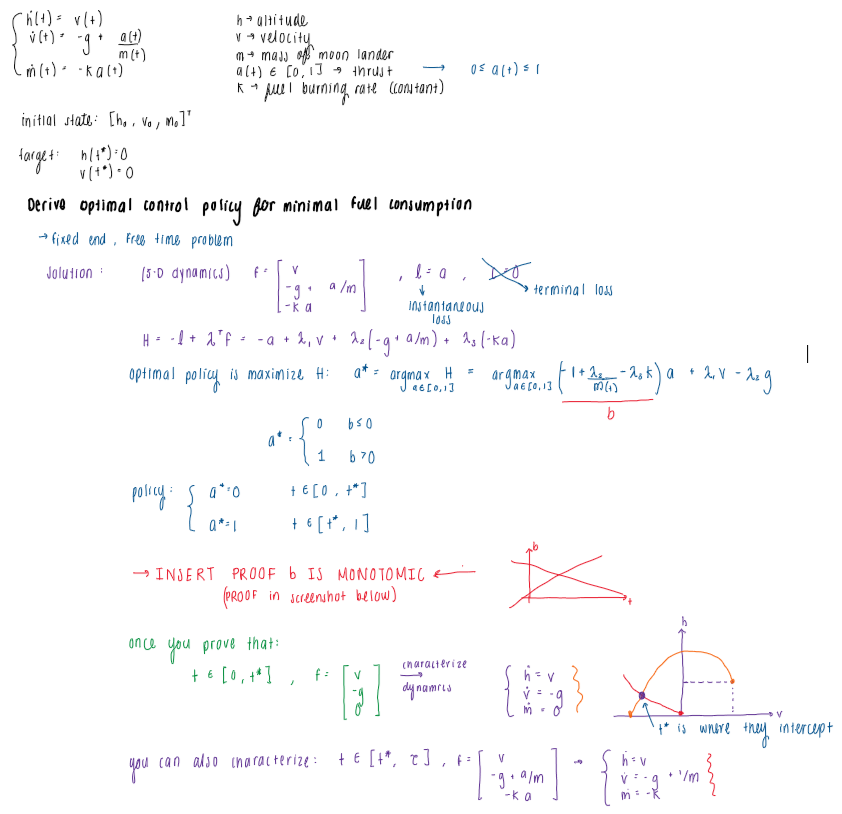 ḣ(t) = v(t)
v̇(t) = -g + a(t)/m(t)
ṁ(t) = -k a(t)
h → altitude
v → velocity
m → mass of moon lander
a(t) ∈ [0,1] → thrust → 0 ≤ a(t) ≤ 1
k → fuel burning rate (constant)
initial state: [h₀, v₀, m₀]ᵀ
target: h(t*)=0
v(t*)=0
Derive optimal control policy for minimal fuel consumption
→ fixed end, free time problem
solution: (5-D dynamics) f = [v, -g + a/m, -k a] , l = a , l = 0
↓ instantaneous loss
→ terminal loss
H = -l + λᵀf = -a + λ₁v + λ₂(-g + a/m) + λ₃(-ka)
optimal policy is maximize H: a* = argmax a∈[0,1] H = argmax a∈[0,1] (-1 + λ₂/m(t) - λ₃k) a + λ₁v - λ₂g
b
a* = { 0 b ≤ 0
1 b > 0
policy: { a* = 0 t ∈ [0, t*]
a* = 1 t ∈ [t*, 1]
→ INSERT PROOF b IS MONOTOMIC ←
(PROOF in screenshot below)
b
t
once you prove that:
t ∈ [0, t*] , f = [v, -g, 0] characterize → dynamics { ḣ = v
v̇ = -g
ṁ = 0 }
h
v
t* is where they intercept
you can also characterize: t ∈ [t*, τ] , f = [v, -g + a/m, -k a] → { ḣ = v
v̇ = -g + 1/m
ṁ = -k }